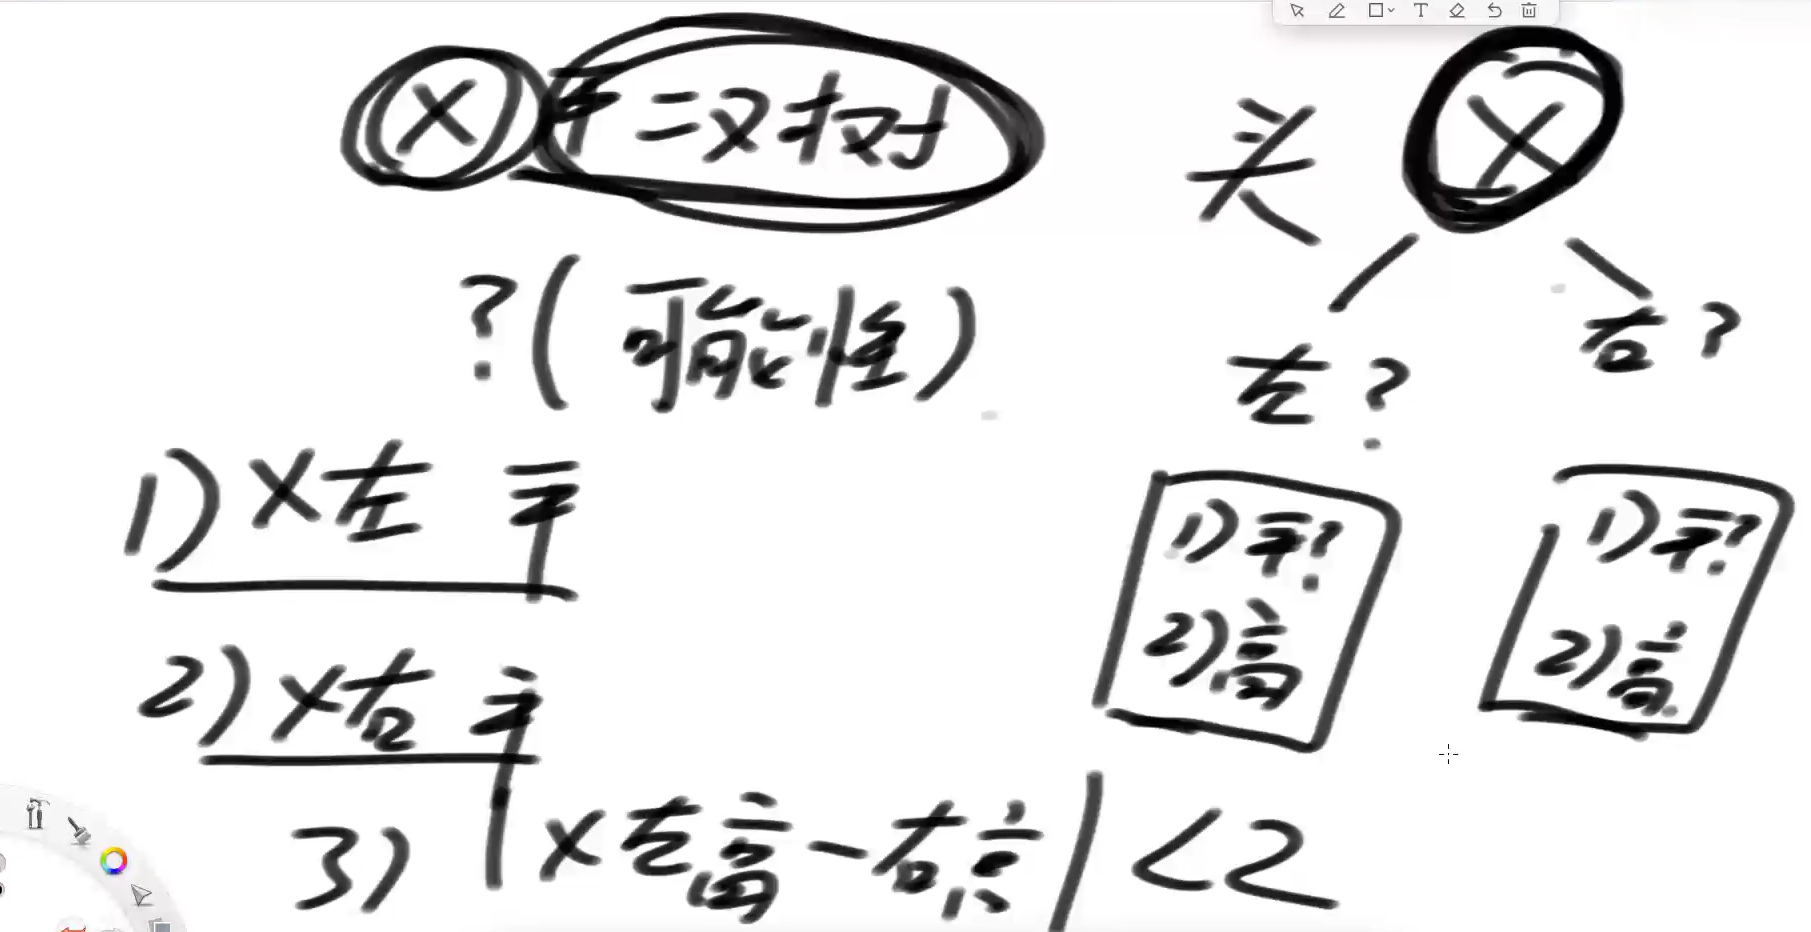 X 平二叉树
?(可能性)
1) X左 平
2) X右 平
3) |X左高-右高| <2
头 X
左? 右?
1) 平? 1) 平?
2) 高 2) 高